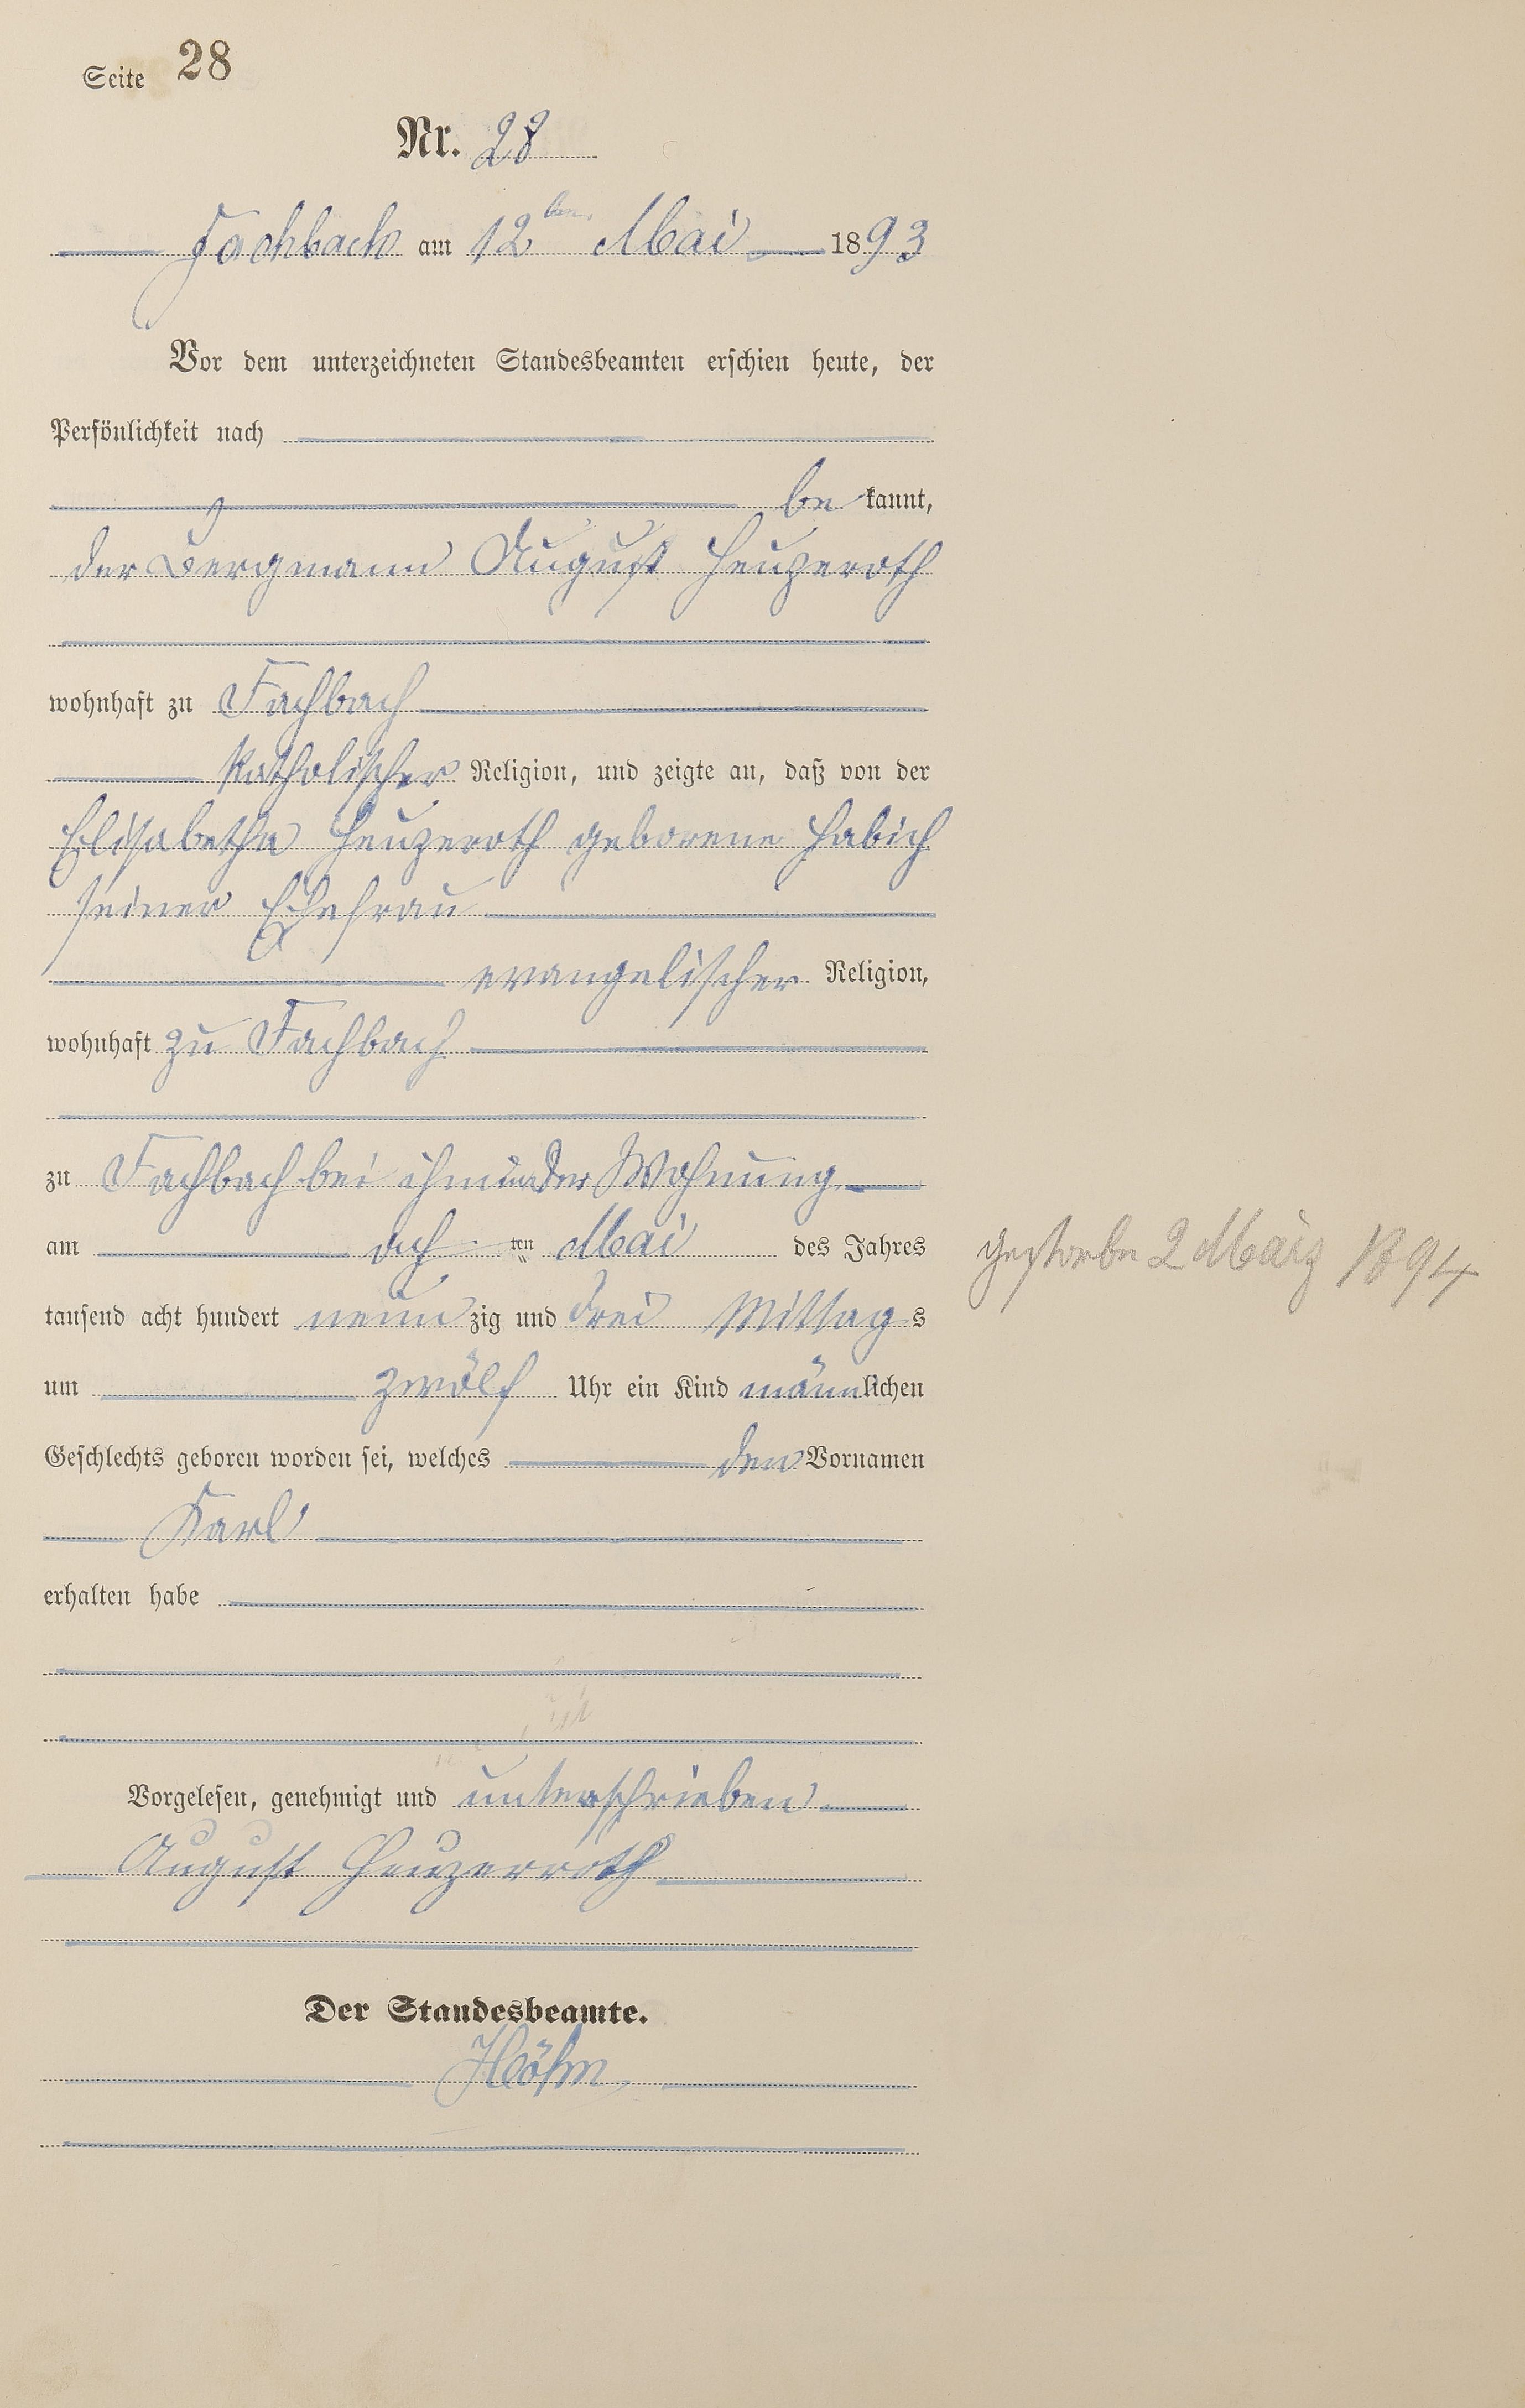 Seite 28
Nr. 28
Fachbach am 12ten Mai 1893
Vor dem unterzeichneten Standesbeamten erschien heute, der
Persönlichkeit nach
be kannt,
der Bergmann August Heuzeroth
wohnhaft zu Fachbach
katholischer Religion, und zeigte an, daß von der
Elisabetha Heuzeroth geborene Habich
seiner Ehefrau
evangelischer Religion,
wohnhaft zu Fachbach
zu Fachbach bei ihm in der Wohnung
am ach ten Mai des Jahres
gestorben 2 März 1894
tausend acht hundert neun zig und drei Mittag s
um zwölf Uhr ein Kind männlichen
Geschlechts geboren worden sei, welches den Vornamen
Karl
erhalten habe
Vorgelesen, genehmigt und unterschrieben
August Heuzerroth
Der Standesbeamte.